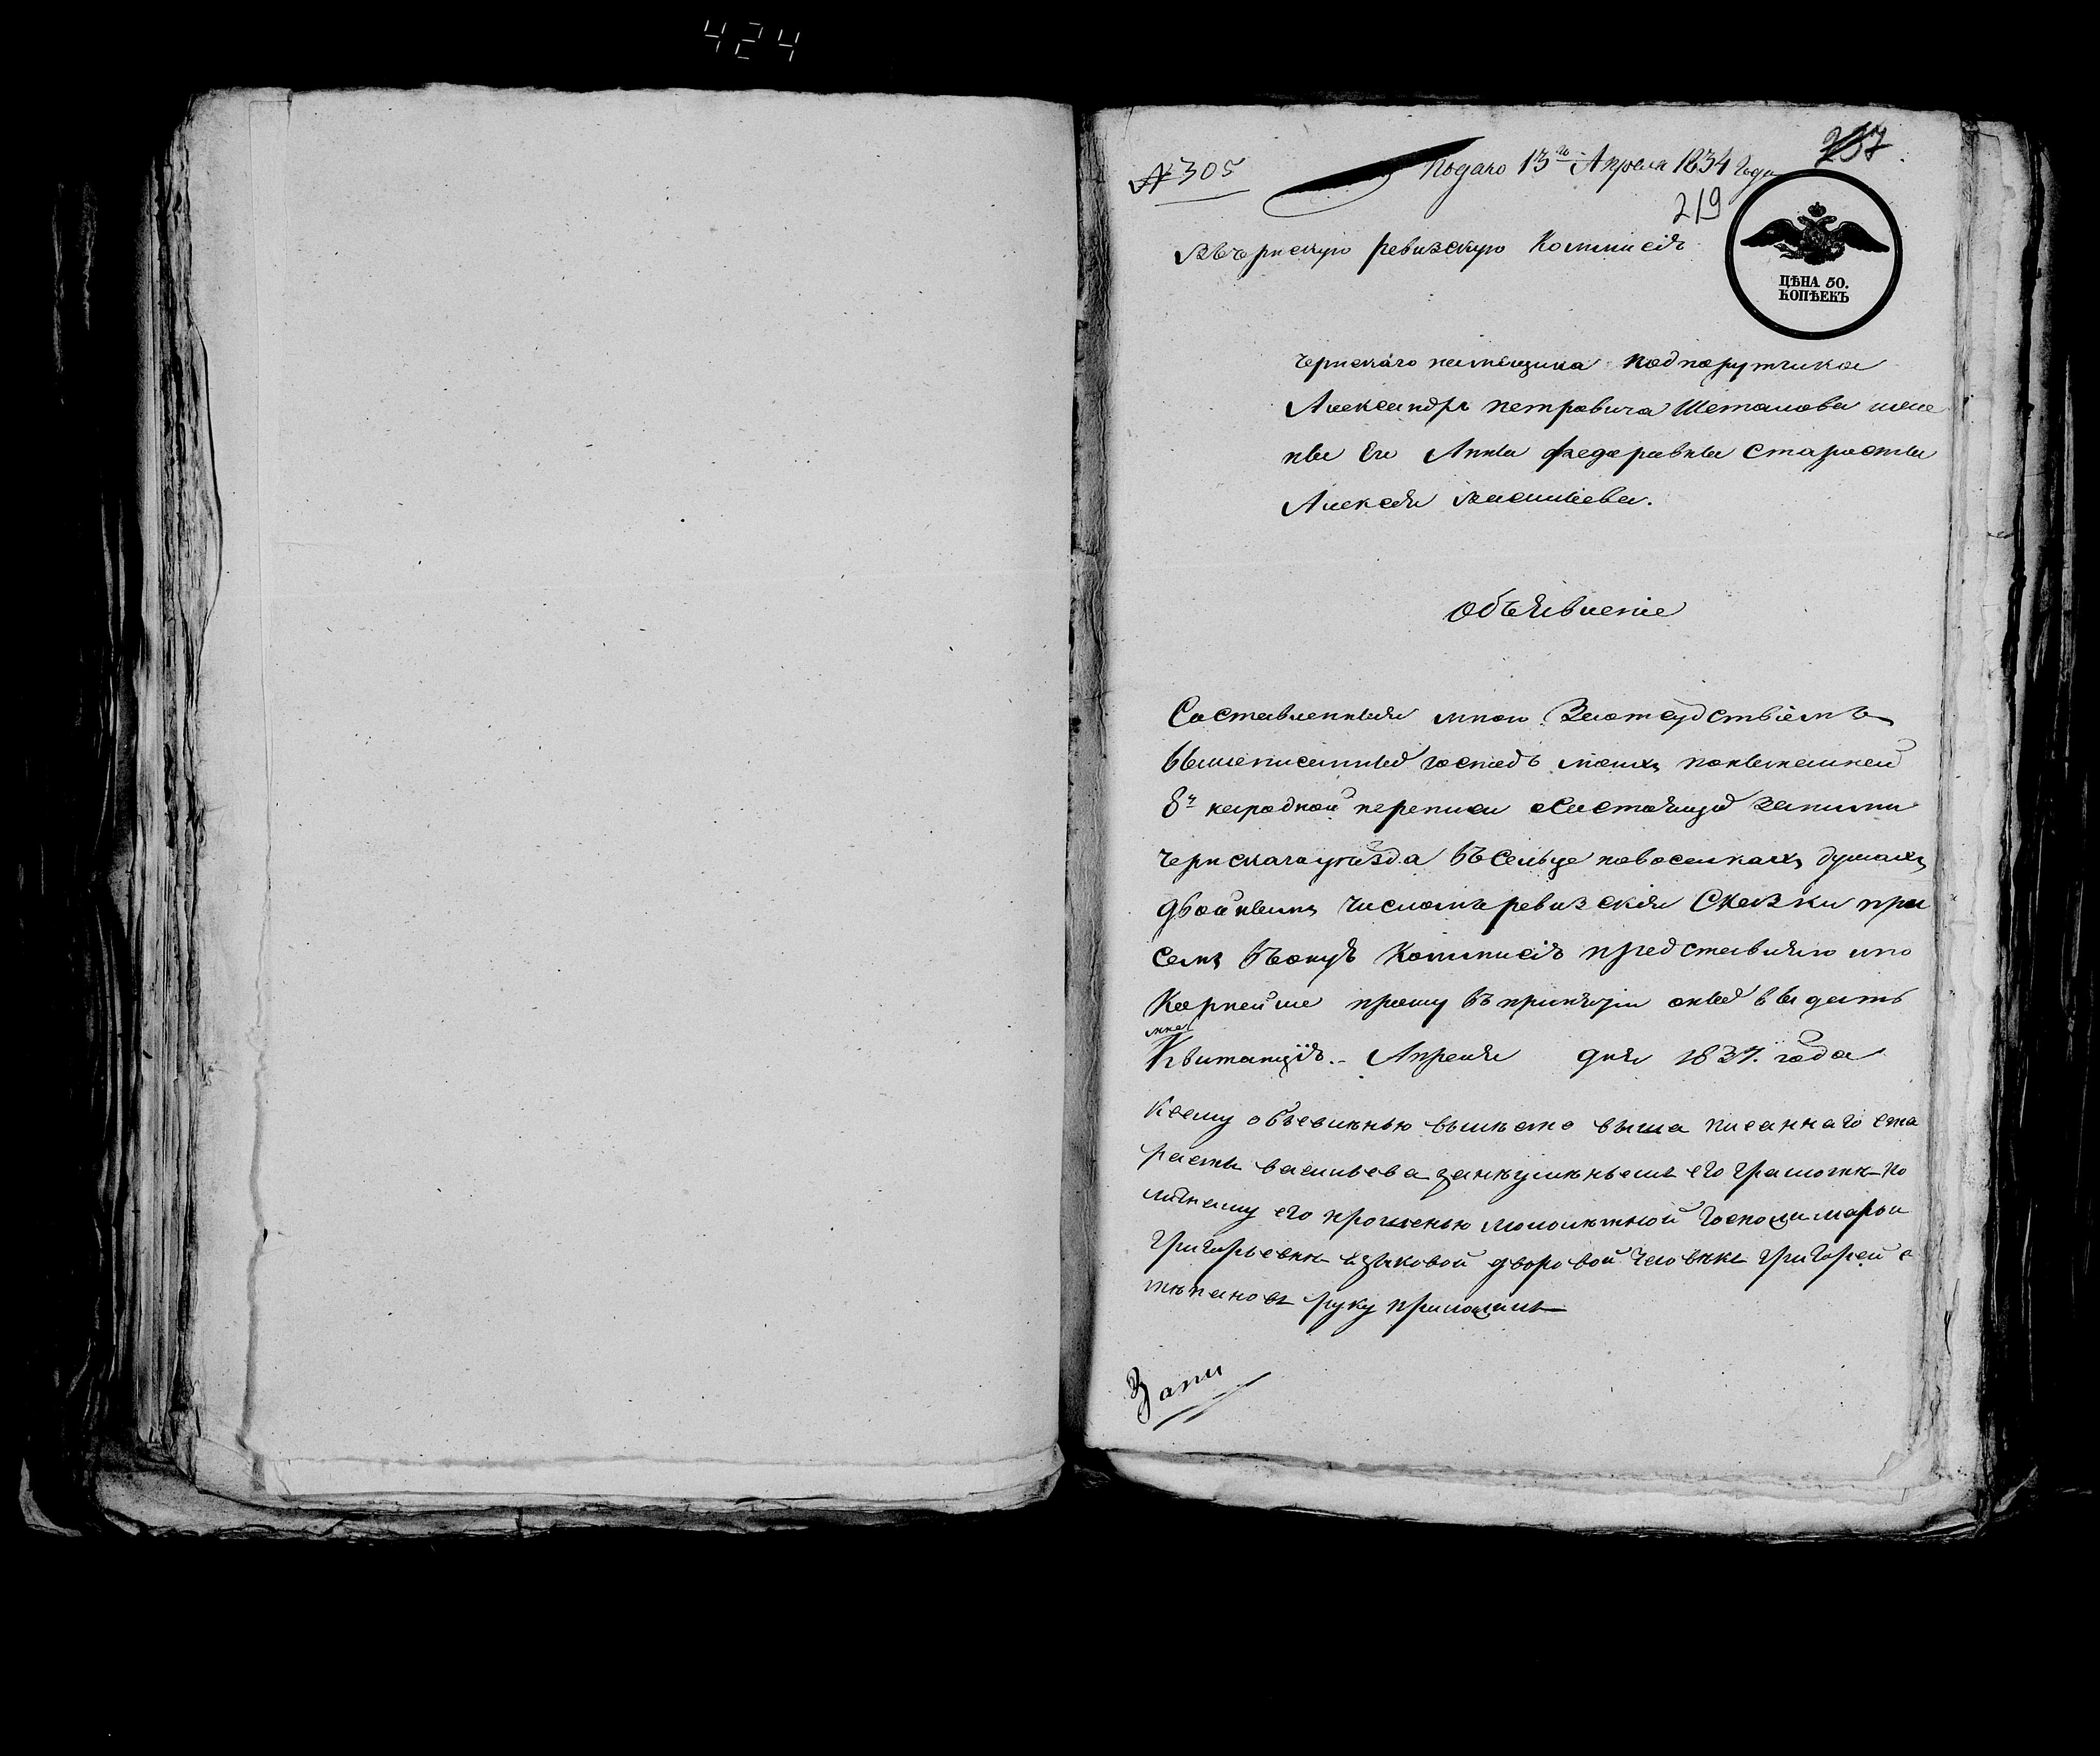 424
№ 305
Подано 13го Апреля 1834 Года
737
219
Въ Чернскую ревизскую Коммисiю
ЦѢНА 50.
КОПѢЕКЪ
Чернскаго помещика Подпорутчика
Александра Петровича Шеталова жены
Его Анны Федоравны Старосты
Алексея Васильева.
Объявленiе
Составленныя мною За отсудствiемъ
вышеписанных господъ моихъ по нынешней
8й народной переписи о состоящих за ними
Чернскаго уезда въ сельце новоселках душах
двойным числомъ ревизскiя Сказки при
семъ въ оную Коммисiю представляю и по
Корнейше прошу въ принятiи оных выдать
мне
Квитанцiю. Апреля дня 1834. года
К сему объевленью вместо выша писаннаго ста
расты васильева за неумениемъ его грамоте по
личнаму его прошенью госпожи марьи
Григорьевне Языковой дворовой человекъ Григорей с
тепановъ руку приложилъ